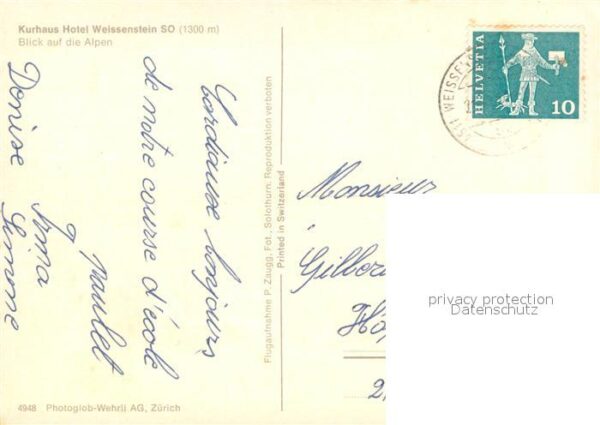 Kurhaus Hotel Weissenstein SO (1300 m)
Blick auf die Alpen
Cordiaux bonjours
de notre course d'école
Paulet
Irma
Denise Simone
Flugaufnahme P. Zaugg, Fot., Solothurn. Reproduktion verboten
Printed in Switzerland
4948 Photoglob-Wehrli AG, Zürich
HELVETIA
10
Monsieur
privacy protection
Datenschutz